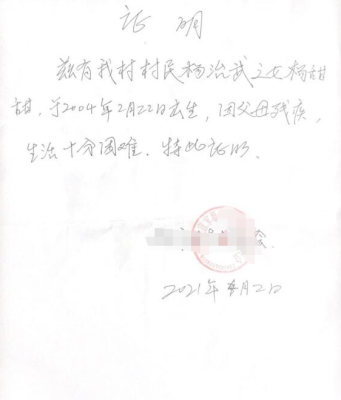 证明
兹有我村村民杨治武之女杨甜
甜，于2004年2月22日出生，因父母残疾，
生活十分困难。特此证明。
2021年 月2日